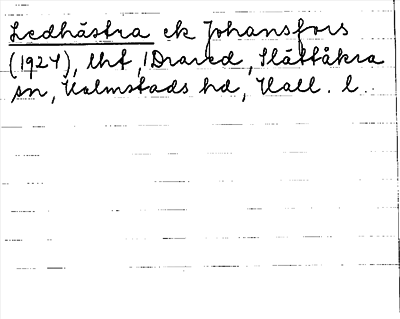 Ledhästra ek Johansfors
(1924), lht, Drared, Slättåkra
sn, Halmstads hd, Hall. l.